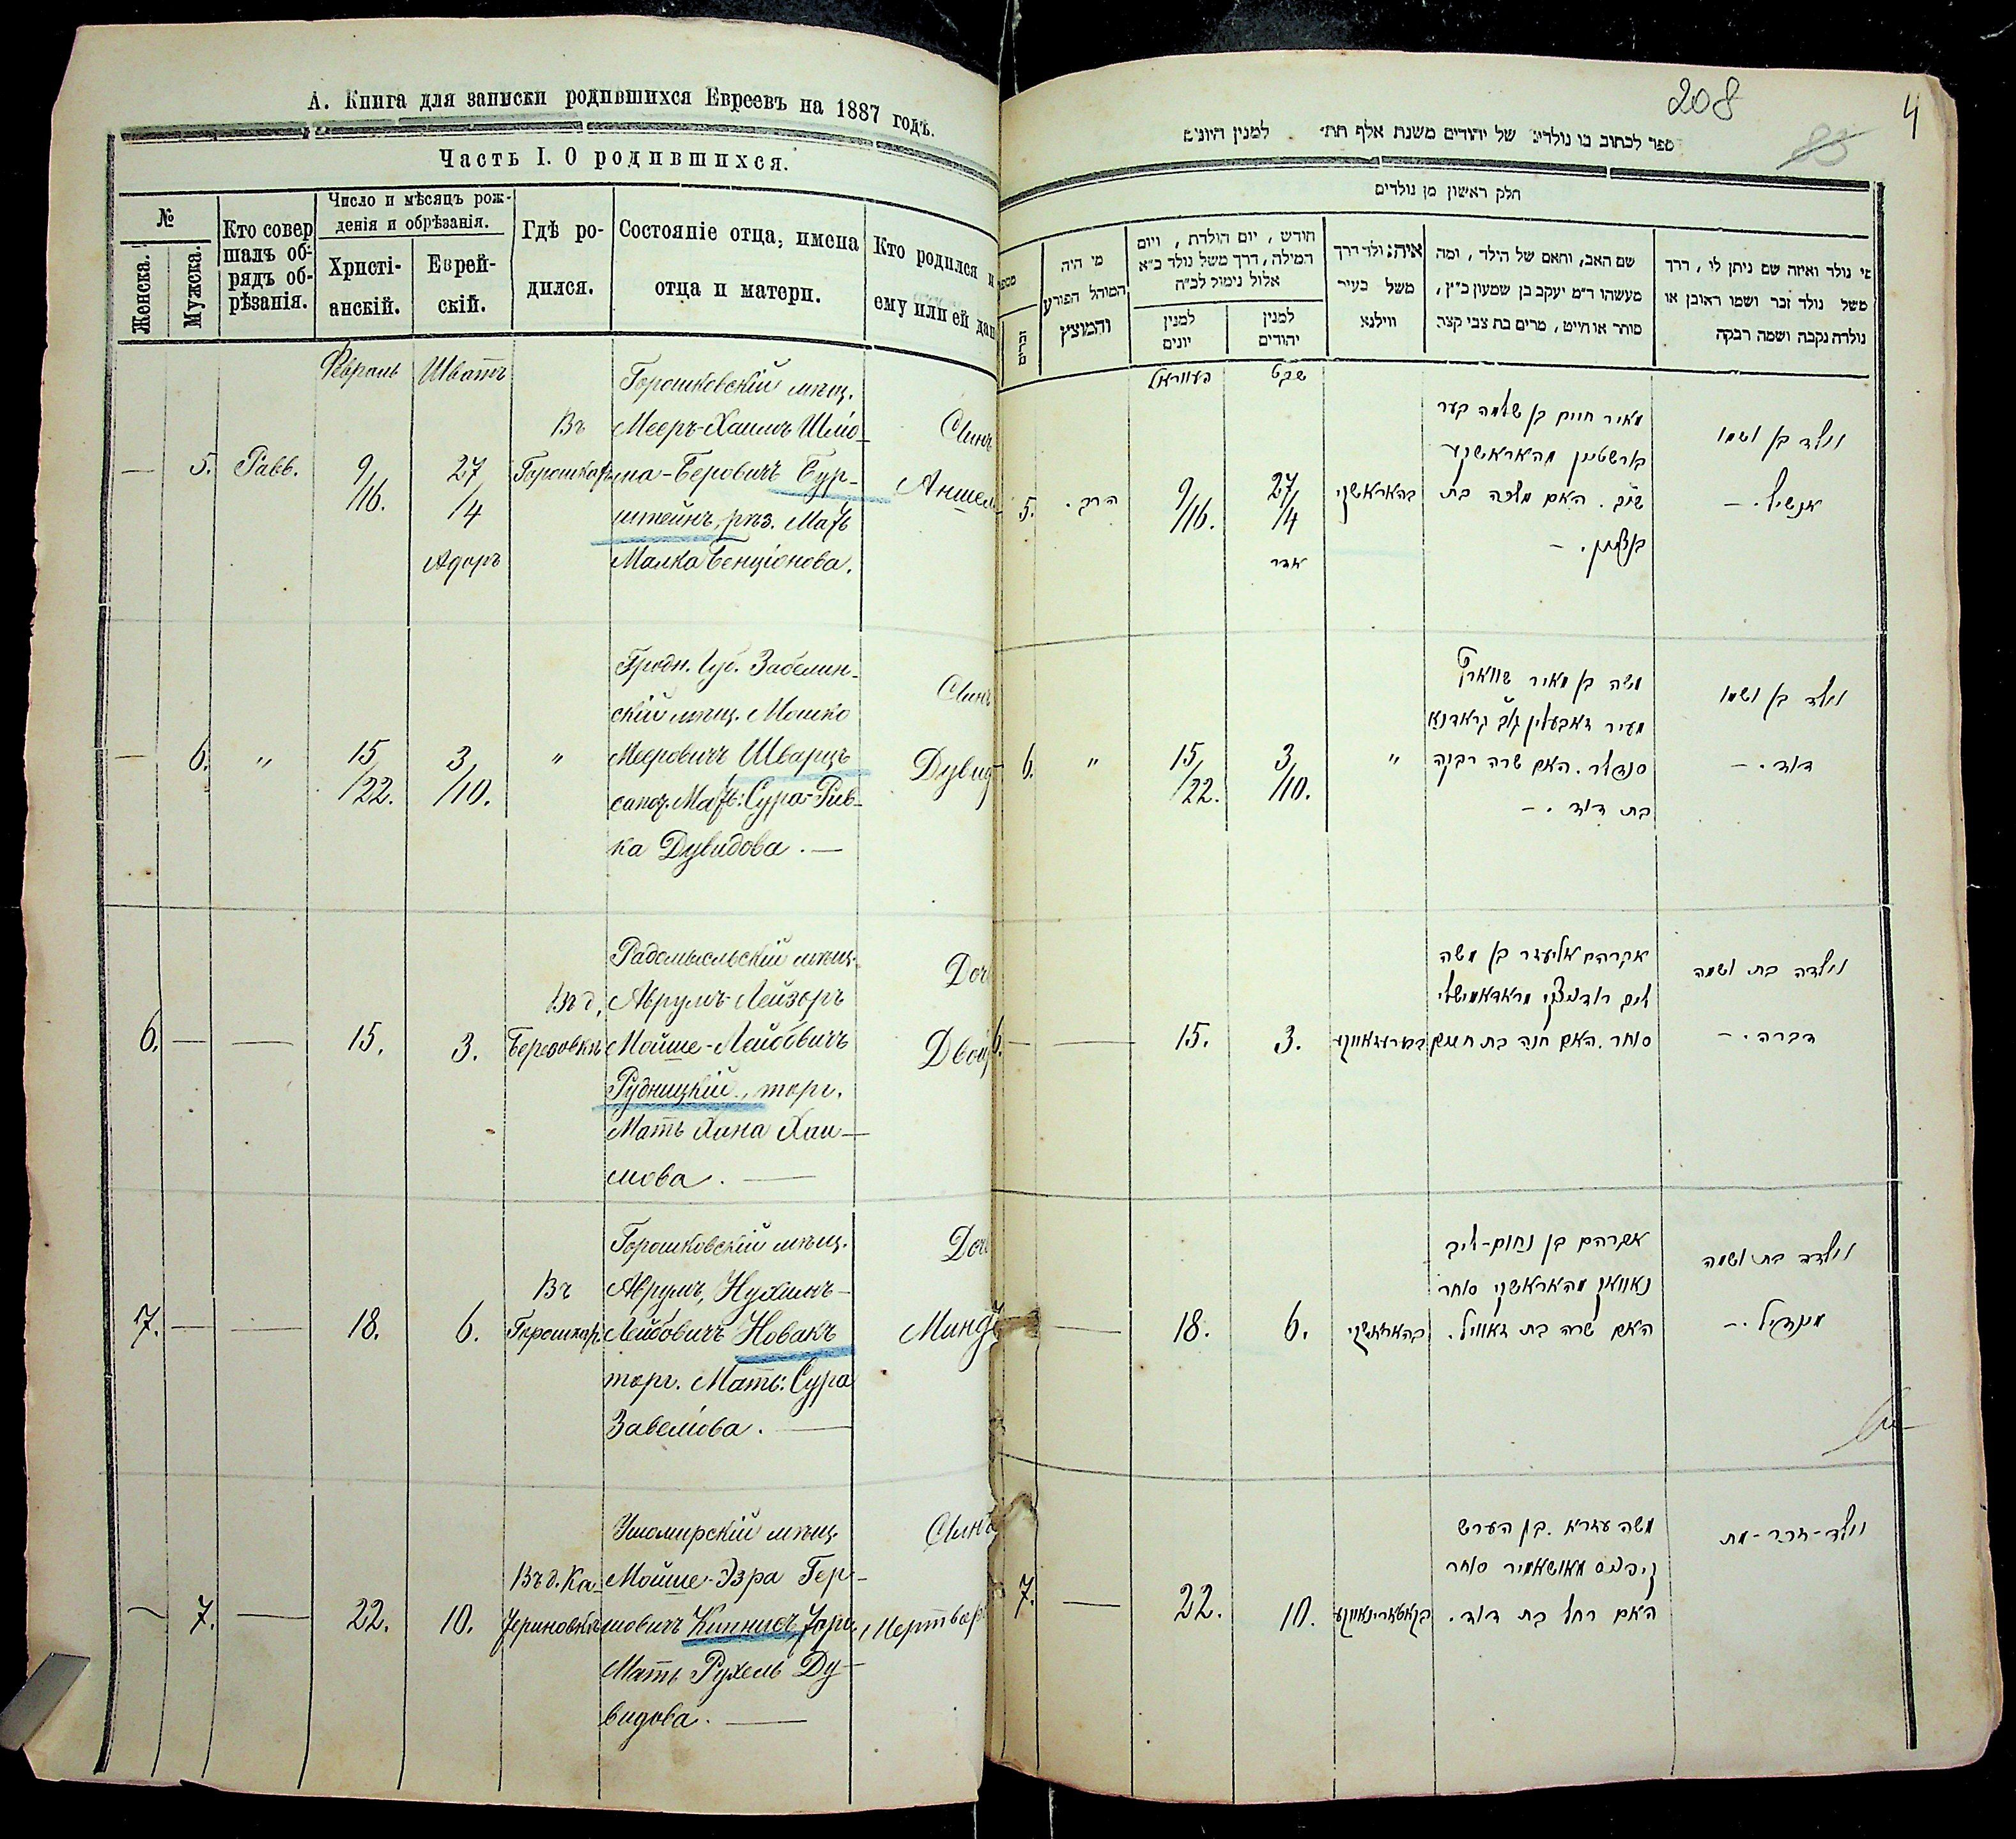 А. Книга для записки родившихся Евреевъ на 1887 годъ.
Часть I. О родившихся.
№
Женска.
Мужска.
Кто совершалъ обрядъ обрѣзанія.
Число и мѣсяцъ рожденія и обрѣзанія.
Христіанскій.
Еврейскій.
Гдѣ родился.
Состояніе отца, имена отца и матери.
Кто родился и
ему или ей дан
Февраль Шватъ
Горошковскій мѣщ.
Въ Мееръ-Хаимъ Шлио- Сынъ
— 5. Равв. 9/16. 27/4 Горошкахъ ма-Беровичъ Бур- Аншел
Адаръ
штейнъ, рѣз. Мать
Малка Бенціонова.
Гродн. Губ. Забелин-
скій мѣщ. Мошко Сынъ
— 6. " 15/22. 3/10. " Мееровичъ Шварцъ Дувид
сапож. Мать: Сура-Рив-
ка Дувидова. —
Радомысльскій мѣщ. Доч
Въ д. Аврумъ-Лейзоръ
6. — — 15. 3. Березовкѣ Мойше-Лейбовичъ Двой
Рудницкій, торг.
Мать Хана Хаи-
мова. —
Горошковскій мѣщ. Доч
Въ Аврумъ, Нухимъ-
7. — — 18. 6. Горошкахъ Лейбовичъ Новакъ Минд
торг. Мать: Сура
Завелiова. —
Ушомирскій мѣщ. Сынъ
Въ д. Ка- Мойше-Эзра Гер-
— 7. — 22. 10. териновкѣ шовичъ Кипнисъ, торг. Мертвор
Мать Рухель Ду-
видова. —
208
4
ספר לכתוב בו נולדים של יהודים משנת אלף תת למנין היונים
חלק ראשון מן נולדים
מספר
זכרים
מי היה
המוהל הפורע
והמוצץ
חודש, יום הולדת, ויום
המילה, דרך משל נולד כ"א
אלול נימול לכ"ח
למנין
יונים
למנין
יהודים
איה נולד דרך
משל בעיר
ווילנא
שם האב, והאם של הילד, ומה
מעשהו ר"מ יעקב בן שמעון כ"ץ,
סוחר או חייט, מרים בת צבי קצב
מי נולד ואיזה שם ניתן לו, דרך
משל נולד זכר ושמו ראובן או
נולדה נקבה ושמה רבקה
פעווראל שבט
מאיר חיים בן שלמה בער
בארשטיין מהאראשקע נולד בן ושמו
5. הרב. 9/16. 27/4 בהאראשקי שו"ב. האם מלכה בת אנשיל. —
אדר בנציון. —
משה בן מאיר שווארץ נולד בן ושמו
מעיר זאבעלין גוב' גראדנא
6. " 15/22. 3/10. " סנדלר. האם שרה רבקה דוד. —
בת דוד. —
אברהם אליעזר בן משה
ליב רודניצקי מראדאמישלי נולדה בת ושמה
6. — 15. 3. סוחר. האם חנה בת חיים דברה. —
אברהם בן נחום-ליב נולדה בת ושמה
נאוואק מהאראשקי סוחר
— 18. 6. בהאראשקי האם שרה בת זאוויל. מינדיל. —
משה עזרא בן הערש נולד-זכר-מת
קיפניס מאושאמיר סוחר
7. — 22. 10. האם רחל בת דוד.